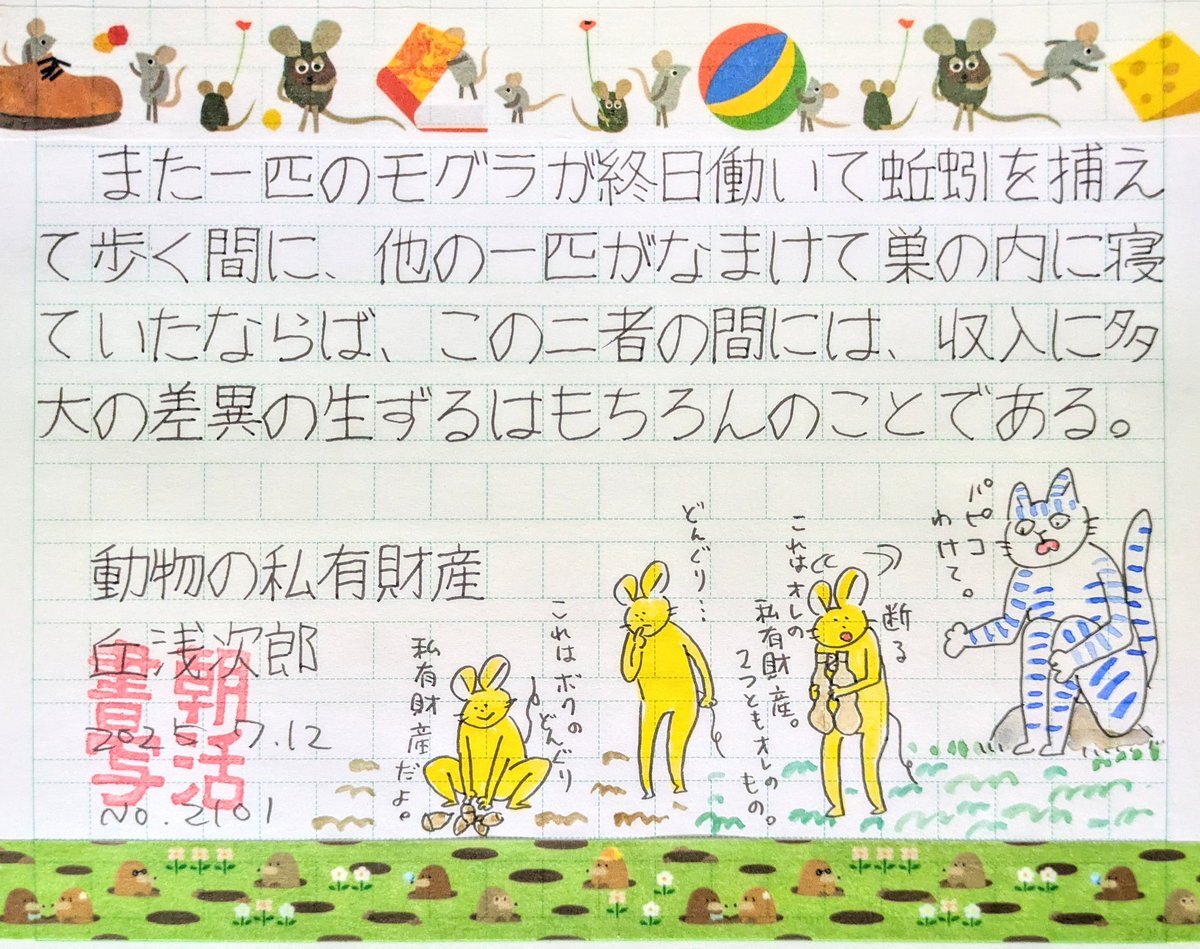 また一匹のモグラが終日働いて蚯蚓を捕え
て歩く間に、他の一匹がなまけて巣の内に寝
ていたならば、この二者の間には、収入に多
大の差異の生ずるはもちろんのことである。
動物の私有財産
丘浅次郎
2025.7.12
No.2101
朝活
書写
パピコ
わけて。
断る
これはオレの
私有財産。
2つともオレの
もの。
どんぐり…
これはボクの
どんぐり
私有財産だよ。